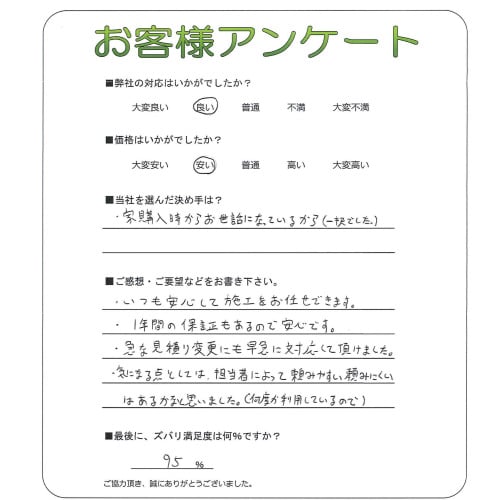 お客様アンケート
■弊社の対応はいかがでしたか?
大変良い 良い 普通 不満 大変不満
■価格はいかがでしたか?
大変安い 安い 普通 高い 大変高い
■当社を選んだ決め手は?
・家購入時からお世話になっているから(一択でした。)
■ご感想・ご要望などをお書き下さい。
・いつも安心して施工をお任せできます。
・1年間の保証もあるので安心です。
・急な見積り変更にも早急に対応して頂けました。
・気になる点としては、担当者によって頼みやすい頼みにくい
はあるかなと思いました。(何度か利用しているので)
■最後に、ズバリ満足度は何%ですか?
95 %
ご協力頂き、誠にありがとうございました。